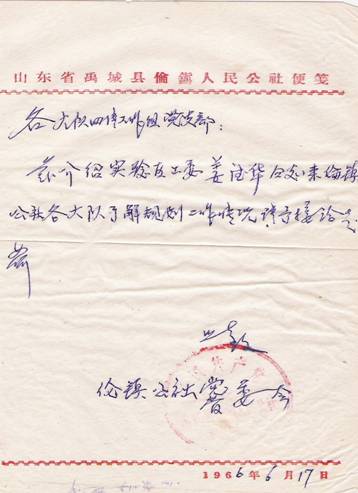 山东省禹城县伦镇人民公社便笺
各大队四清工作组党支部：
兹介绍实验区工委姜 华 来伦镇
公社各大队了解规划工作情况请予接洽是
荷
此致
伦镇公社党委会
1966年6月17日